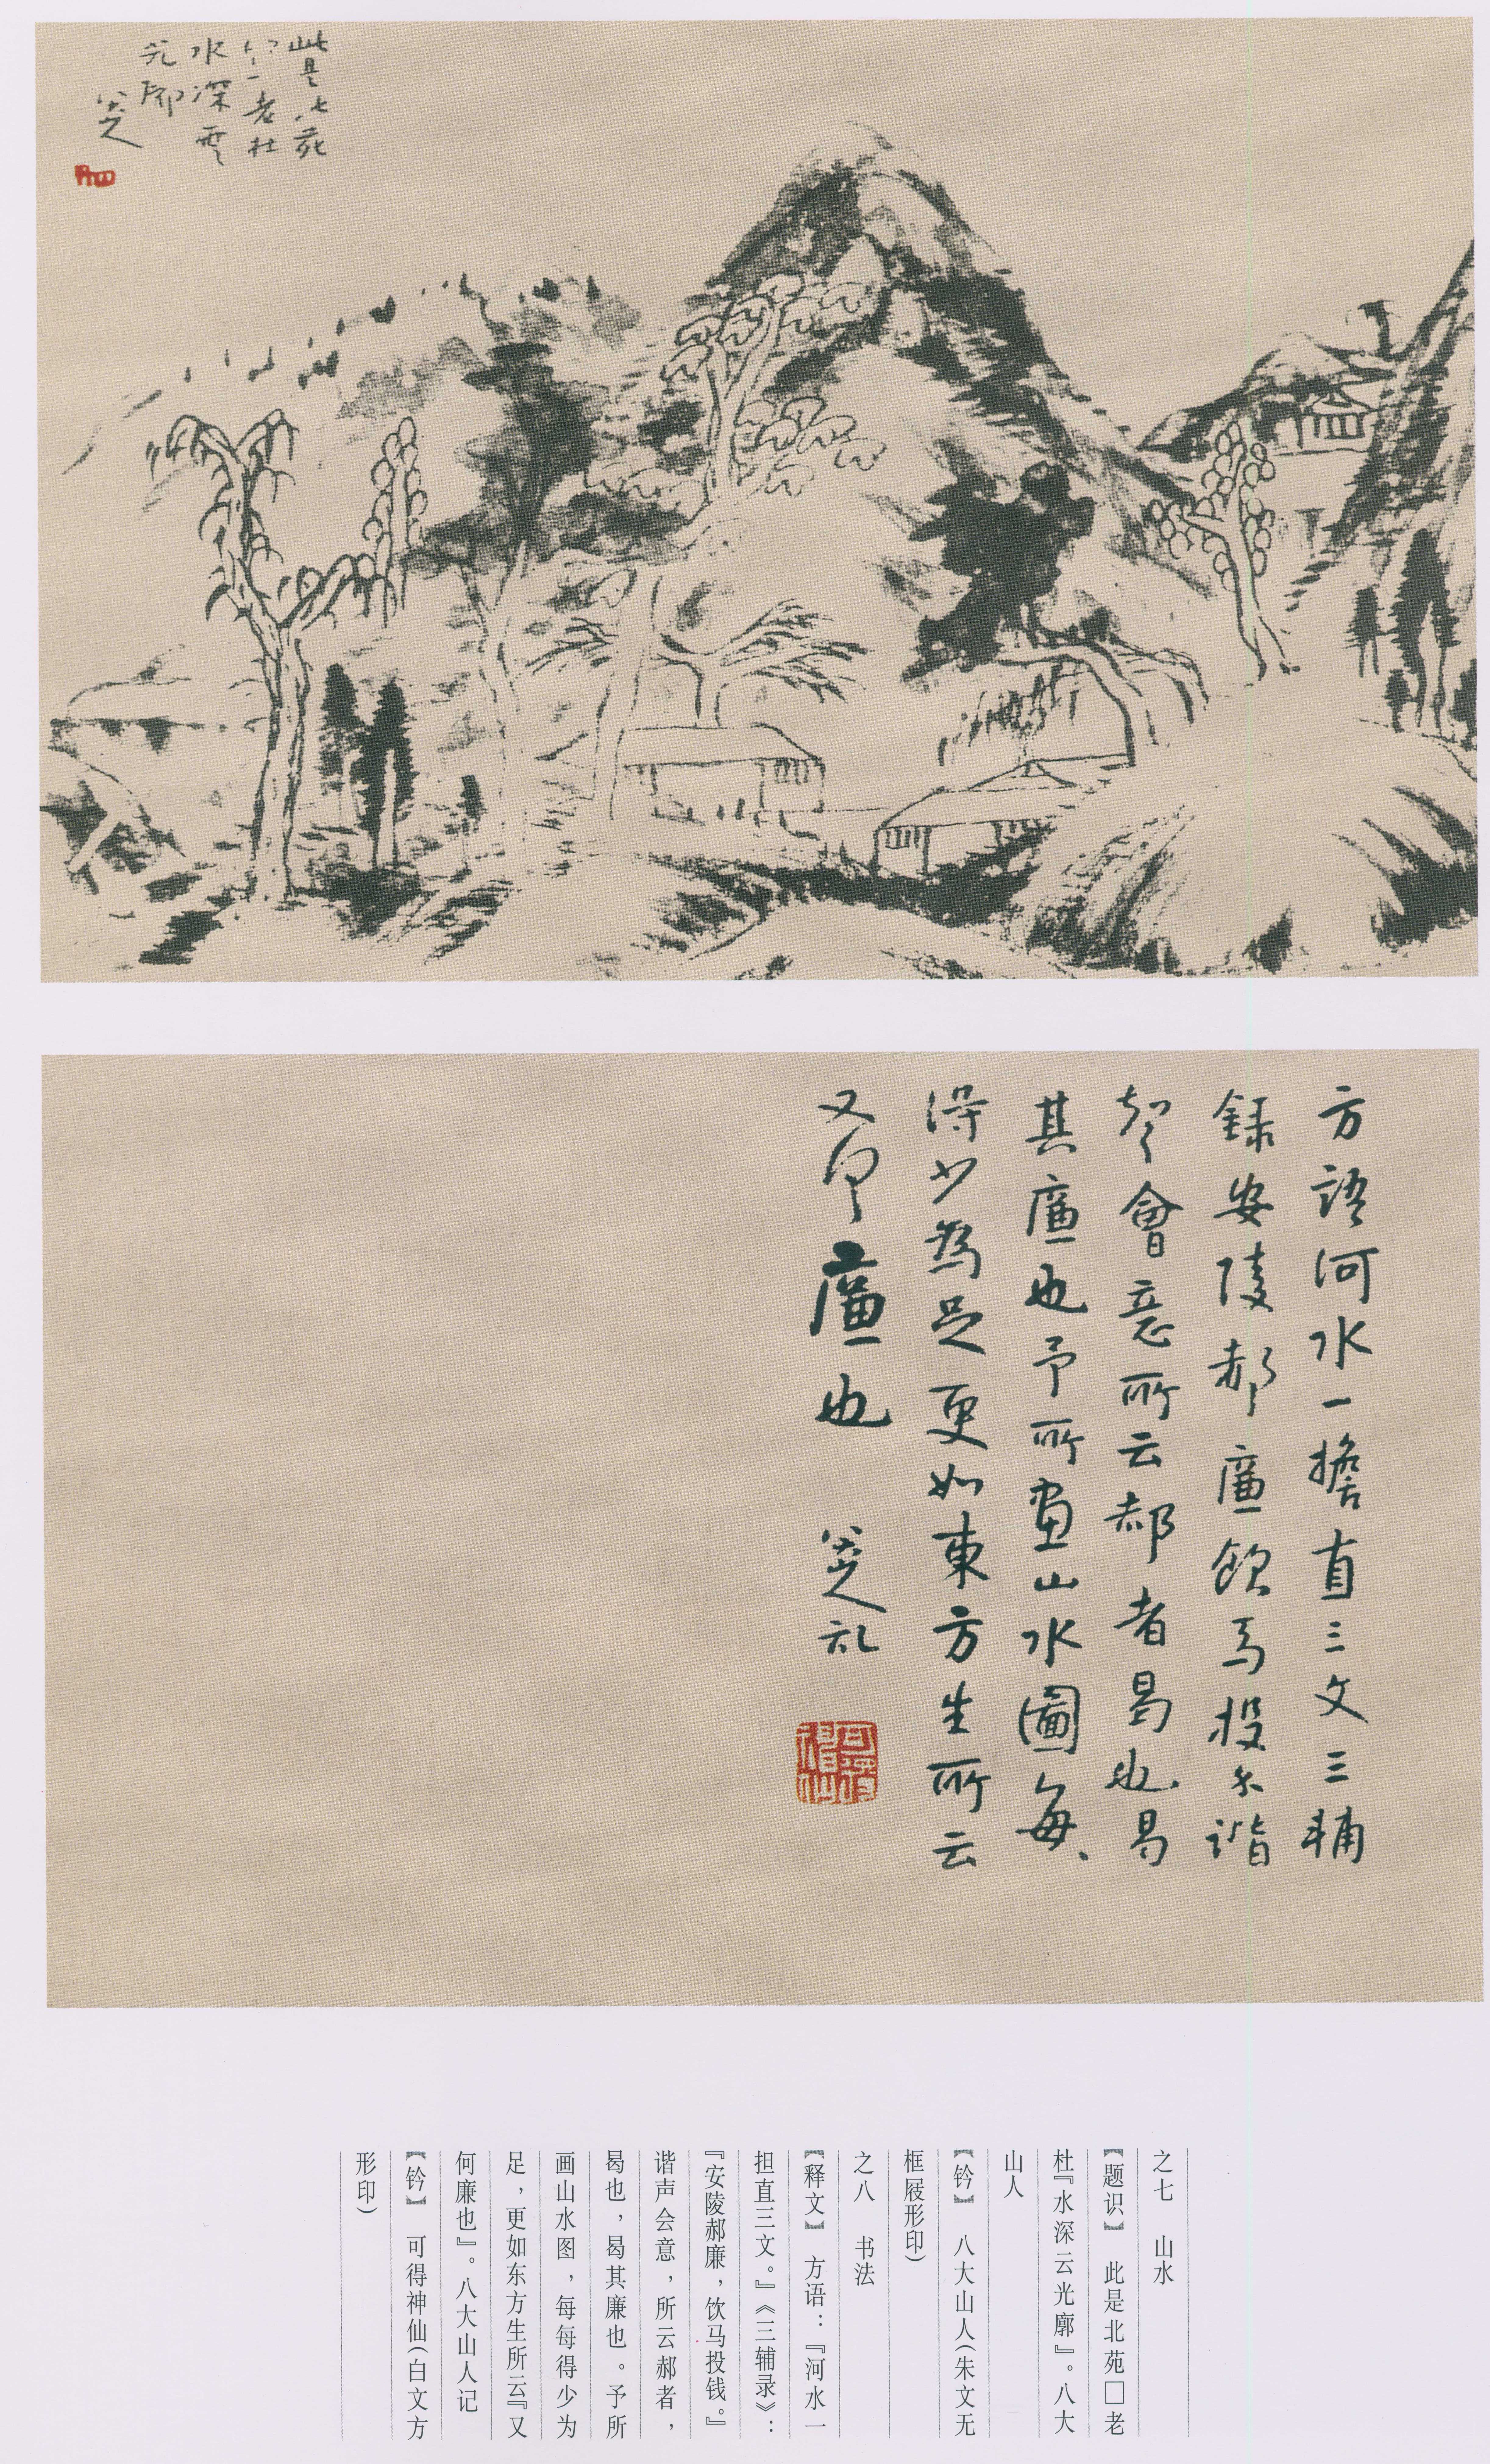 此是北苑
老杜
水深雲
光廓
八大山人
方語河水一擔直三文三輔
録安陵郝廉飲馬投錢諧
聲會意所云郝者曷也曷
其廉也予所畫山水圖每、
得少為足更如東方生所云
又何廉也 八大山人記
可得神仙
之七 山水
【题识】 此是北苑□老
杜『水深云光廓』。八大
山人
【钤】 八大山人(朱文无
框屐形印)
之八 书法
【释文】 方语：『河水一
担直三文。』《三辅录》：
『安陵郝廉，饮马投钱。』
谐声会意，所云郝者，
曷也，曷其廉也。予所
画山水图，每每得少为
足，更如东方生所云『又
何廉也』。八大山人记
【钤】 可得神仙(白文方
形印)